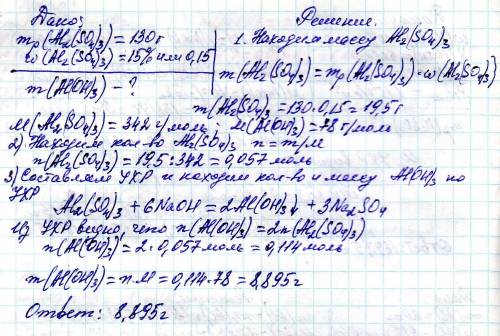 Дано:
mр(Al₂(SO₄)₃) = 130 г
ω(Al₂(SO₄)₃) = 15% или 0,15
m(Al(OH)₃) – ?
Решение.
1. Находим массу Al₂(SO₄)₃
m(Al₂(SO₄)₃) = mр(Al₂(SO₄)₃)·ω(Al₂(SO₄)₃)
m(Al₂(SO₄)₃) = 130·0,15 = 19,5 г
M(Al₂(SO₄)₃) = 342 г/моль; M(Al(OH)₃) = 78 г/моль
2) Находим кол-во Al₂(SO₄)₃ n = m/M
n(Al₂(SO₄)₃) = 19,5:342 = 0,057 моль
3) Составляем УХР и находим кол-во и массу Al(OH)₃ по
УХР
Al₂(SO₄)₃ + 6NaOH = 2Al(OH)₃↓ + 3Na₂SO₄
Из УХР видно, что n(Al(OH)₃) = 2n(Al₂(SO₄)₃)
n(Al(OH)₃) = 2·0,057 моль = 0,114 моль
m(Al(OH)₃) = n·M = 0,114·78 = 8,895 г
Ответ: 8,895 г